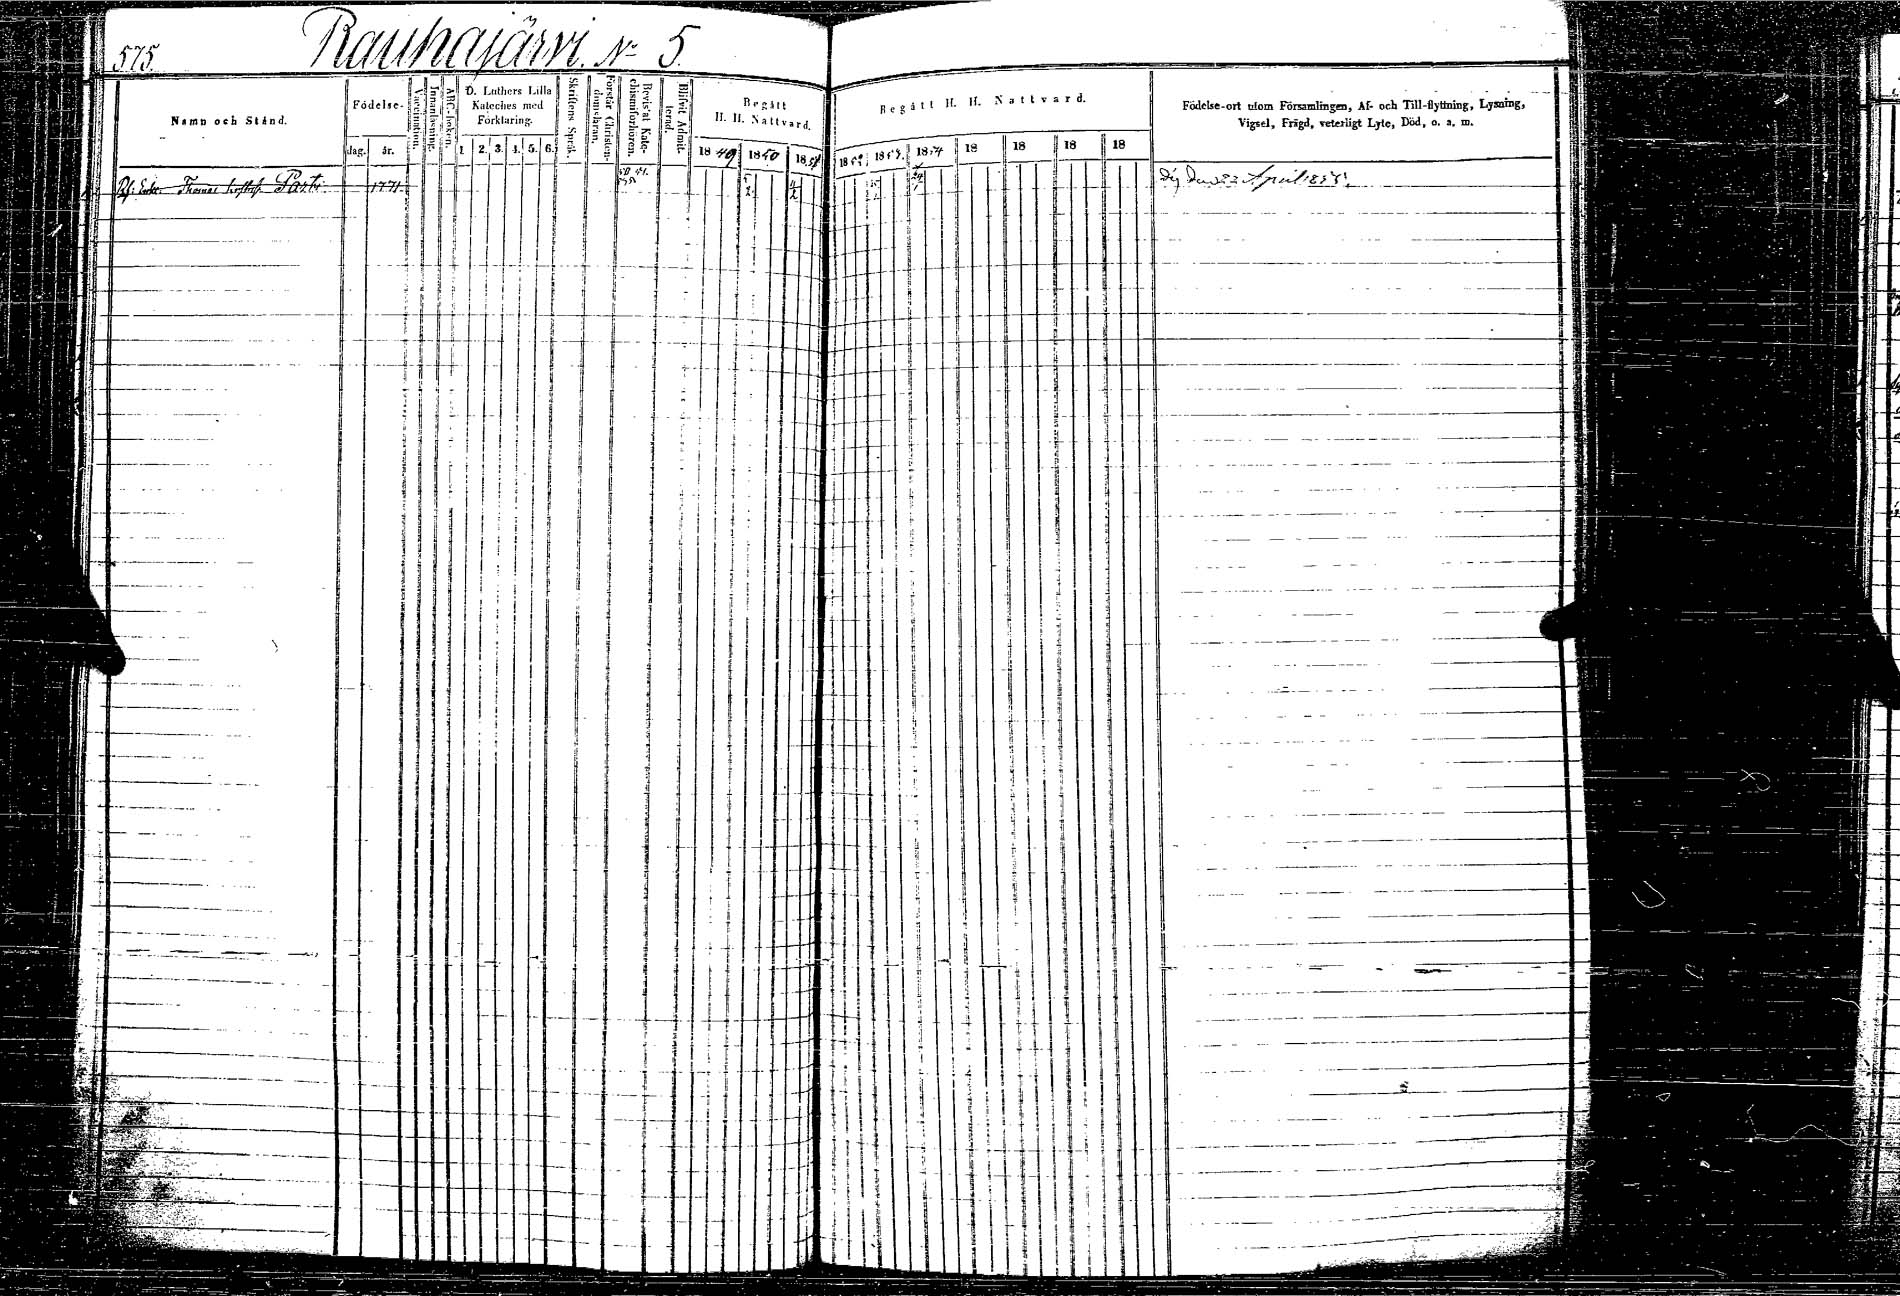 575.
Rauhajärvi. No 5.
Namn och Stånd.
Födelse-
dag.
år.
Vaccination.
Innanläsning.
ABC-boken.
D. Luthers Lilla
Kateches med
Förklaring.
1. 2. 3. 4. 5. 6.
Skriftens Språk.
Förstår Christen-
domsläran.
Bevistat Kate-
chismiförhören.
Blifvit Admit-
terad.
Begått
H. H. Nattvard.
1849 1850 1851
Begått H. H. Nattvard.
1852. 1853. 1854 18 18 18 18
Födelse-ort utom Församlingen, Af- och Till-flyttning, Lysning,
Vigsel, Frägd, veterligt Lyte, Död, o. a. m.
Thomas 1771.
April